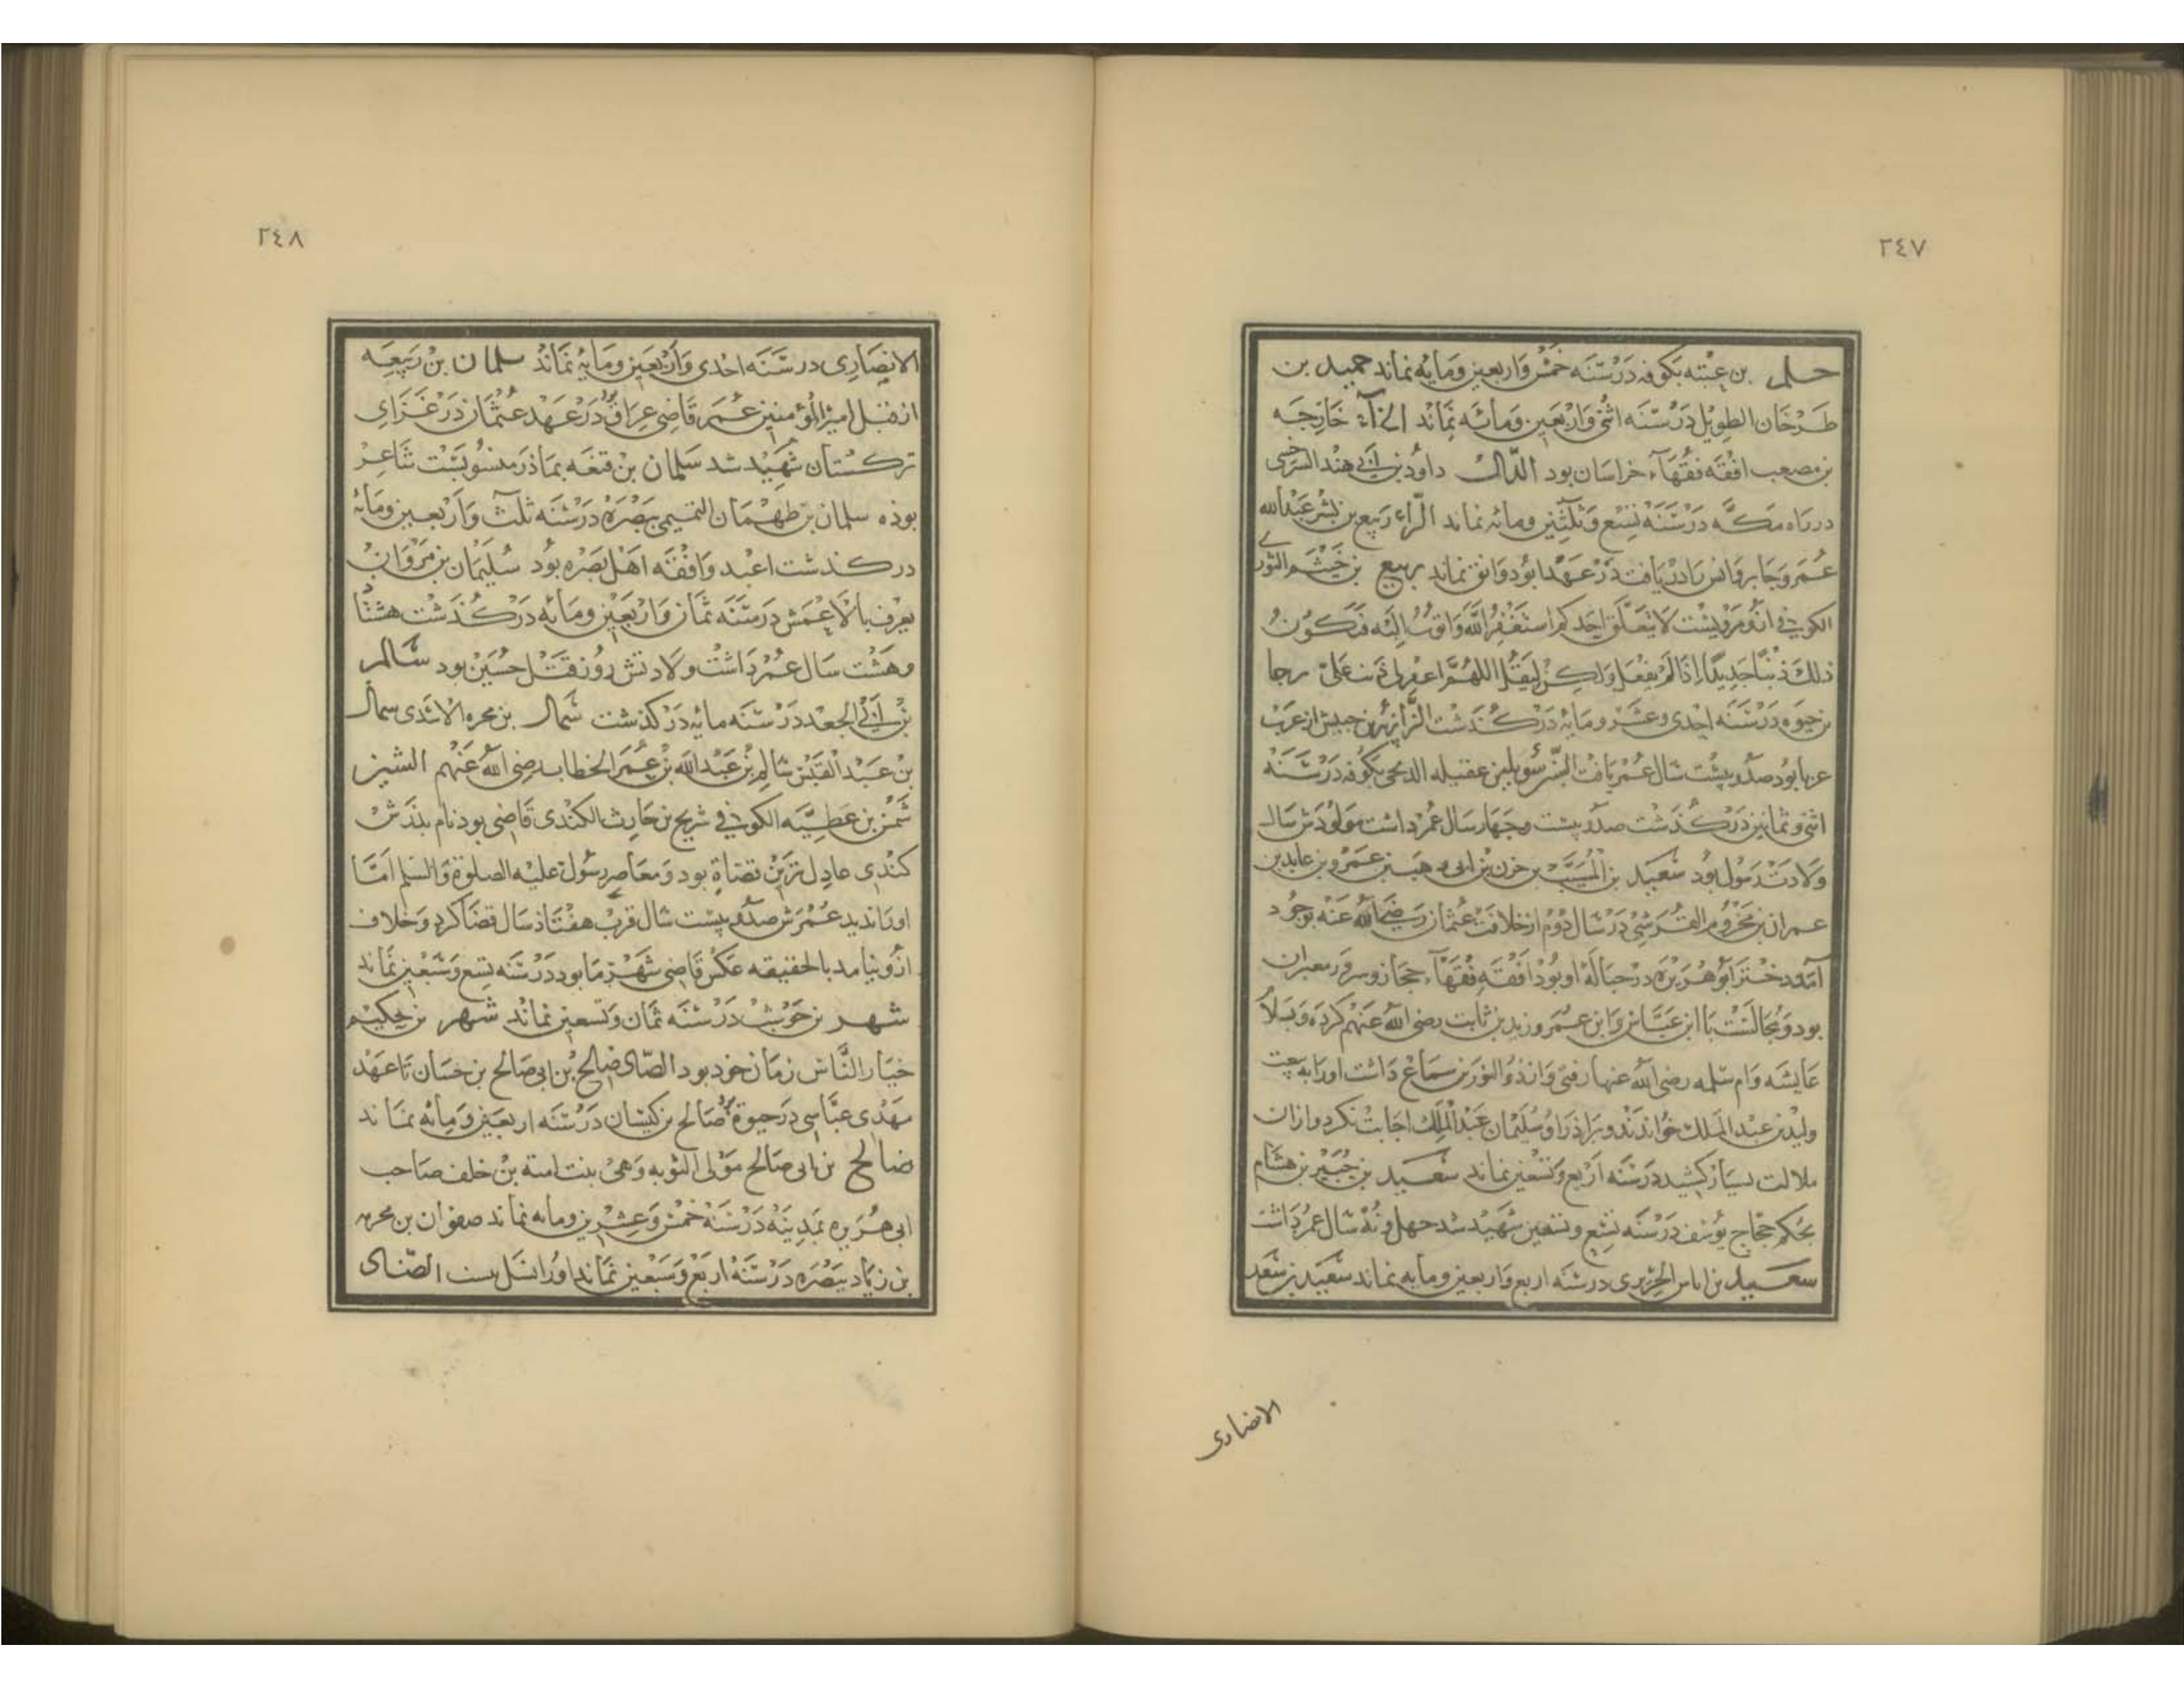 ٢٤٧
حلم بن عتبه بكوفه در سنه خمس واربعين ومايه نماند حميد بن
طرخان الطويل در سنه اثنى واربعين ومائه نماند الخآء خارجه
بن مصعب افقه فقهآء خراسان بود الدّال داود بن ابى هند السرخسى
در راه مكه در سنه تسع وثلثين ومائه نماند الرّاء ربيع بن بشر عبدالله
عمر وجابر وانس را دريافت در عهد ابو دوانق نماند ربيع بن خيثم الثورى
الكوفى ازو مرويست لا احدكم استغفر الله واتوب اليه فتكون
ذلك ذنبا جديدا اذا لم يفعل ولكن ليقل اللهم اغفرلى تب على رجا
بن حيوه در سنه احدى وعشر ومايه در كذشت الزا زر بن حبيش از عرب
عربا بود صد و بيست سال عمر يافت السّين سويد بن عقيله بكوفه در سنه
اثنى وثمانين در كذشت صد و بيست وجهار سال عمر داشت مولودش سال
ولادت رسول بود سعيد بن المسيّب بن حزن بن ابى وهب بن عمرو بن عايد بن
عمران بن مخزوم القرشى در سال دوم از خلافت عثمان رضى الله عنه بوجود
آمد و دختر ابو هريره در حباله او بود افقه فقهآء حجاز وسرور معبران
بود ومجالست با ابن عباس وابن عمر وزيد بن ثابت رضى الله عنهم كرده وبسلا
عايشه وام سلمه رضى الله عنها رفتى وازذو النورين سماع داشت اورا به بيعت
وليد بن عبد الملك خواندند وبراذر او سليمان عبد الملك اجابت نكرد وازان
ملالت بسيار كشيد در سنه اربع وتسعين نماند سعيد بن جبير بن هشام
بحكم حجاج يوسف در سنه تسع وتسعين شهيد شد جهل ونه سال عمر داشت
سعيد بن اياس الجريرى در سنه اربع واربعين ومايه نماند سعيد بن سعد
الانصارى
٢٤٨
الانصارى در سنه احدى واربعين ومايه نماند سلمان بن ربيعه
از قبل امير المؤمنين عمر قاضى عراق بود در عهد عثمان در غزاى
تركستان شهيد شد سلمان بن قنعه بماذر منسوبست شاعر
بوذه سلمان بن طهمان التميمى ببصره در سنه ثلث واربعين ومائه
در كذشت اعبد وافقه اهل بصره بود سليمان بن مروان
يعرف بالاعمش در سنه ثمان واربعين ومائه در كذشت هشتاد
وهشت سال عمر داشت ولادتش روز قتل حسين بود سالم
بن ابى الجعد در سنه مايه در كذشت سمال بن محره الاسدى سمال
بن عبد القيس سالم بن عبد الله بن عمر الخطاب رضى الله عنهم الشين
شمر بن عطيه الكوفى شريح بن حارث الكندى قاضى بود نام بذرش
كندى عادل ترين قضاة بود ومعاصر رسول عليه الصلوة والسلم امّا
اورا نديد عمرش صد و بيست سال قرب هفتاذ سال قضا كرد وخلاف
ازو نيامد بالحقيقه عكس قاضى شهر ما بود در سنه تسع وسبعين نماند
شهر بن حوشب در سنه ثمان وتسعين نماند شهر بن حكيم
خيار النّاس زمان خود بود الصّاد صالح بن ابى صالح بن حسان تا عهد
مهدى عبّاسى در حيوة بود صالح بن كيسان در سنه اربعين ومائه نماند
صالح بن ابى صالح مولى التوبه وهى بنت امية بن خلف صاحب
ابى هريره بمدينه در سنه خمس وعشرين ومايه نماند صفوان بن محره
بن زياد ببصره در سنه اربع وسبعين نماند اورا نسل الضّاد